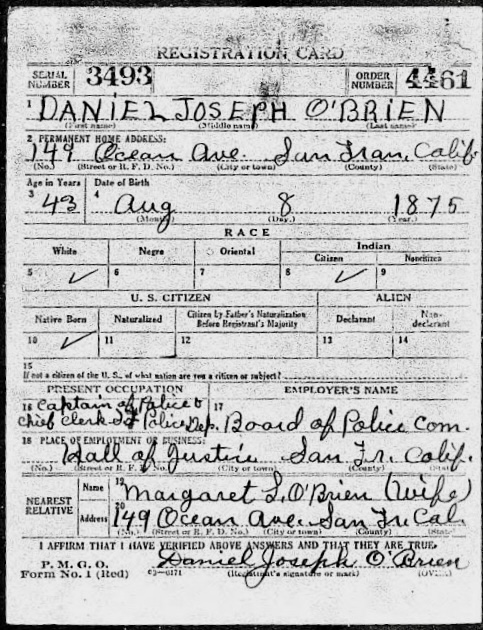 REGISTRATION CARD
SERIAL NUMBER 3493 ORDER NUMBER 4461
1 DANIEL JOSEPH O'BRIEN
(First name) (Middle name) (Last name)
2 PERMANENT HOME ADDRESS:
149 Ocean Ave. San Fran, Calif.
(No.) (Street or R. F. D. No.) (City or town) (County) (State)
Age in Years Date of Birth
3 43 4 Aug 8 1875
(Month) (Day.) (Year.)
RACE
White Negro Oriental Indian
Citizen Noncitizen
5 ✓ 6 7 8 ✓ 9
U. S. CITIZEN ALIEN
Native Born Naturalized Citizen by Father's Naturalization Before Registrant's Majority Declarant Non-declarant
10 ✓ 11 12 13 14
15
If not a citizen of the U. S., of what nation are you a citizen or subject?
PRESENT OCCUPATION EMPLOYER'S NAME
16 Captain of Police & 17
Chief Clerk S.F. Police Dep. Board of Police Com.
18 PLACE OF EMPLOYMENT OR BUSINESS:
Hall of Justice San Fr. Calif.
(No.) (Street or R. F. D. No.) (City or town) (County) (State)
NEAREST RELATIVE
Name 19 Margaret L. O'Brien (Wife)
Address 20 149 Ocean Ave. San Fr. Cal.
(No.) (Street or R. F. D. No.) (City or town) (County) (State)
I AFFIRM THAT I HAVE VERIFIED ABOVE ANSWERS AND THAT THEY ARE TRUE.
P. M. G. O.
Form No. 1 (Red) 03—6171 Daniel Joseph O'Brien
(Registrant's signature or mark) (OVER)